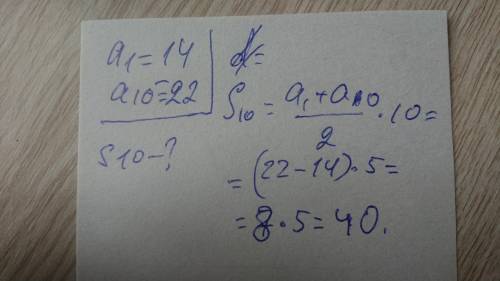 a₁ = 14
a₁₀ = 22
S10 - ?
d =
S₁₀ = (a₁ + a₁₀)/2 · 10 =
= (22 - 14) · 5 =
= 8 · 5 = 40.